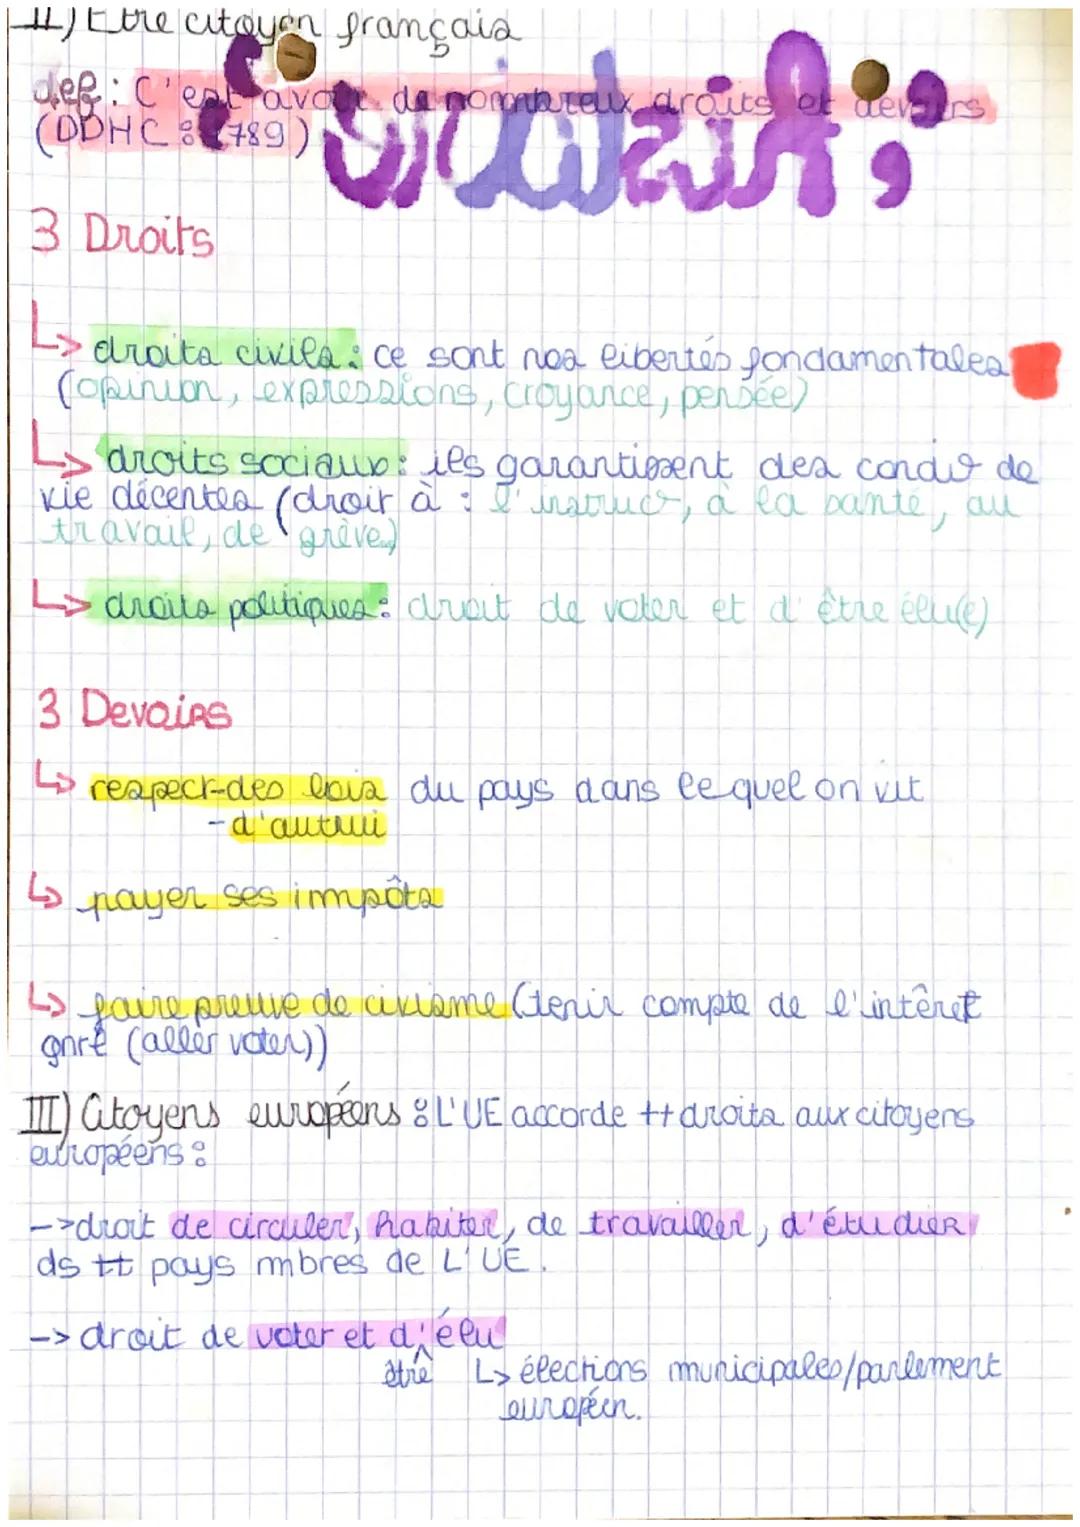 II) Être citoyen français
def : C'est avoir de nombreux droits et devoirs
(DDHC : 1789)
3 Droits
↳ droits civils : ce sont nos libertés fondamentales
(opinion, expressions, croyance, pensée)
↳ droits sociaux : ils garantissent des cond° de
vie décentes (droit à : l'instruc°, à la santé, au
travail, de grève)
↳ droits politiques : droit de voter et d'être élu(e)
3 Devoirs
↳ respect-des lois du pays dans lequel on vit
- d'autrui
↳ payer ses impôts
↳ faire preuve de civisme (tenir compte de l'intêret
gnrl (aller voter))
III) Citoyens européens : L'UE accorde tt droits aux citoyens
européens :
-> droit de circuler, habiter, de travailler, d'étudier
ds tt pays mbres de L'UE.
-> droit de voter et d'élu
être ↳ élections municipales/parlement
européen.